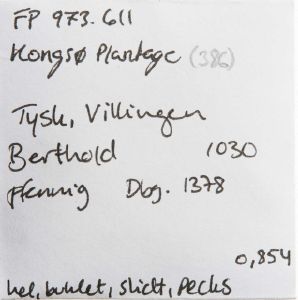 FP 973.611
Kongsø Plantage (386)
Tysk, Villingen
Berthold 1030
Pfennig Dbg. 1378
0,854
hel, buklet, slidt, pecks